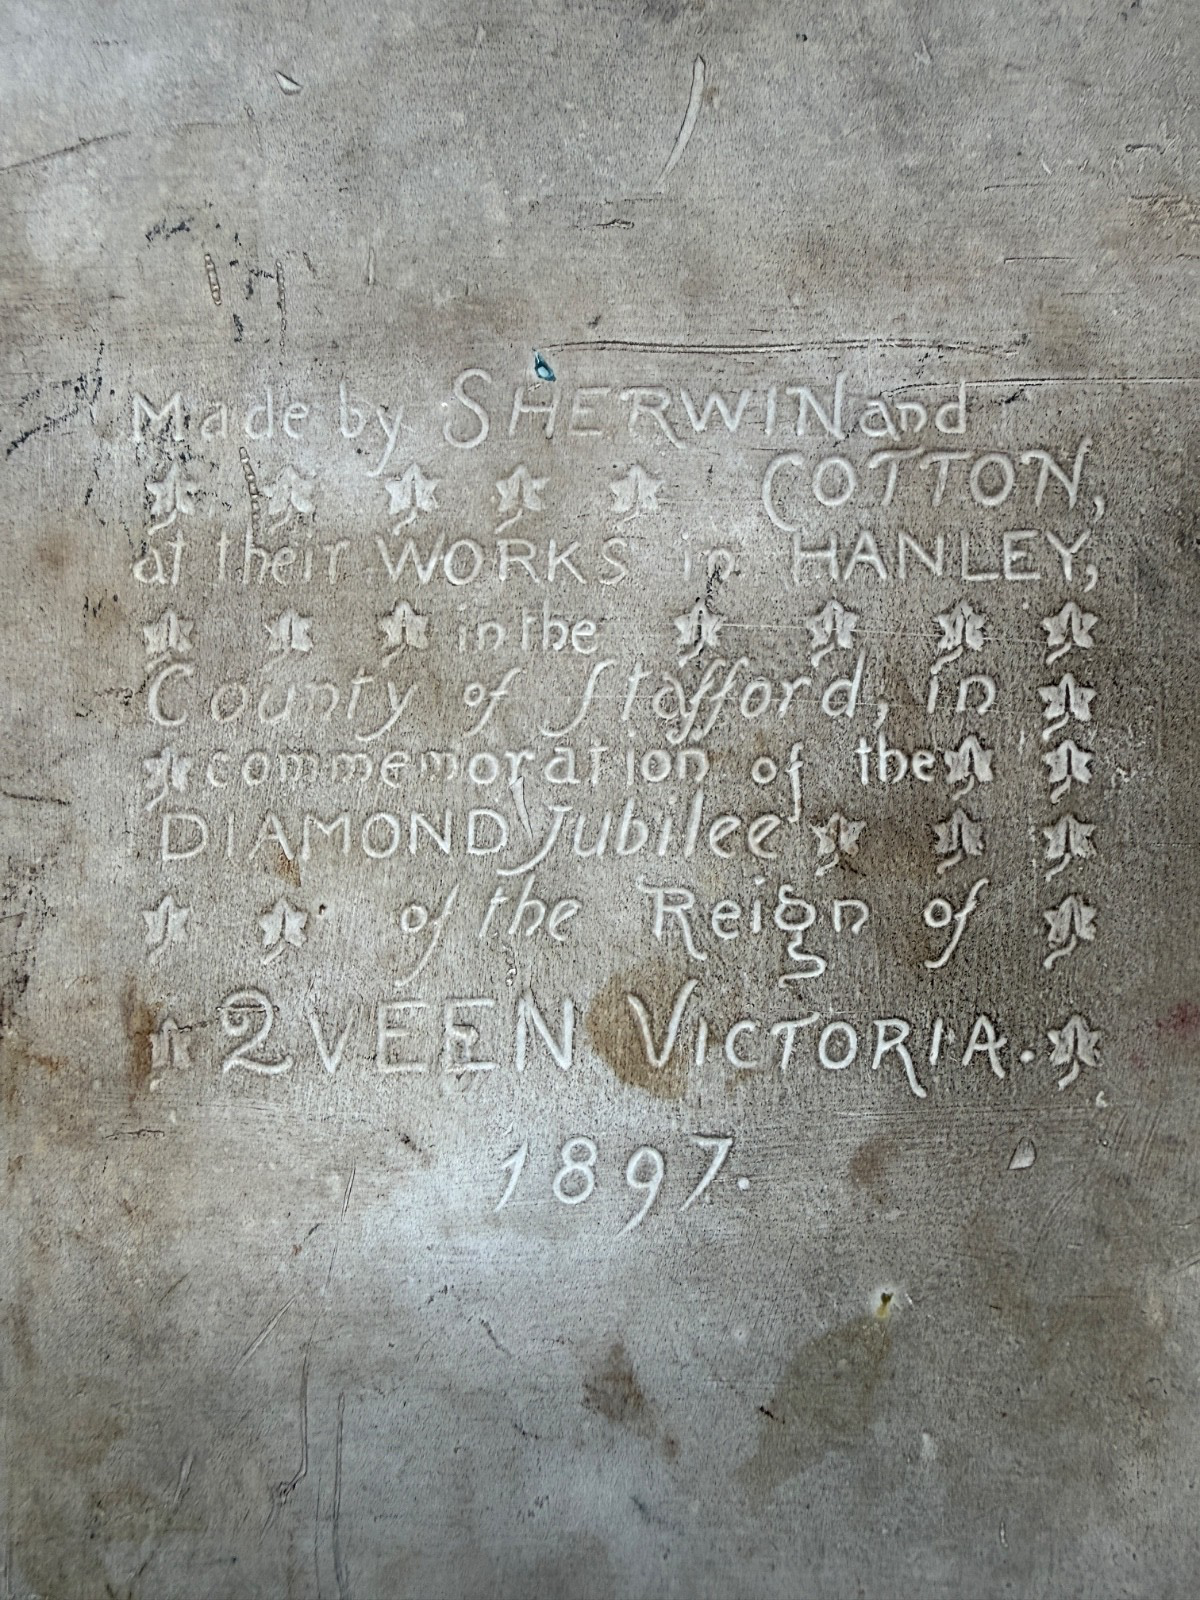 Made by SHERWIN and
COTTON,
at their WORKS in HANLEY,
in the
County of Stafford, in
commemoration of the
DIAMOND Jubilee
of the Reign of
QVEEN VICTORIA.
1897.